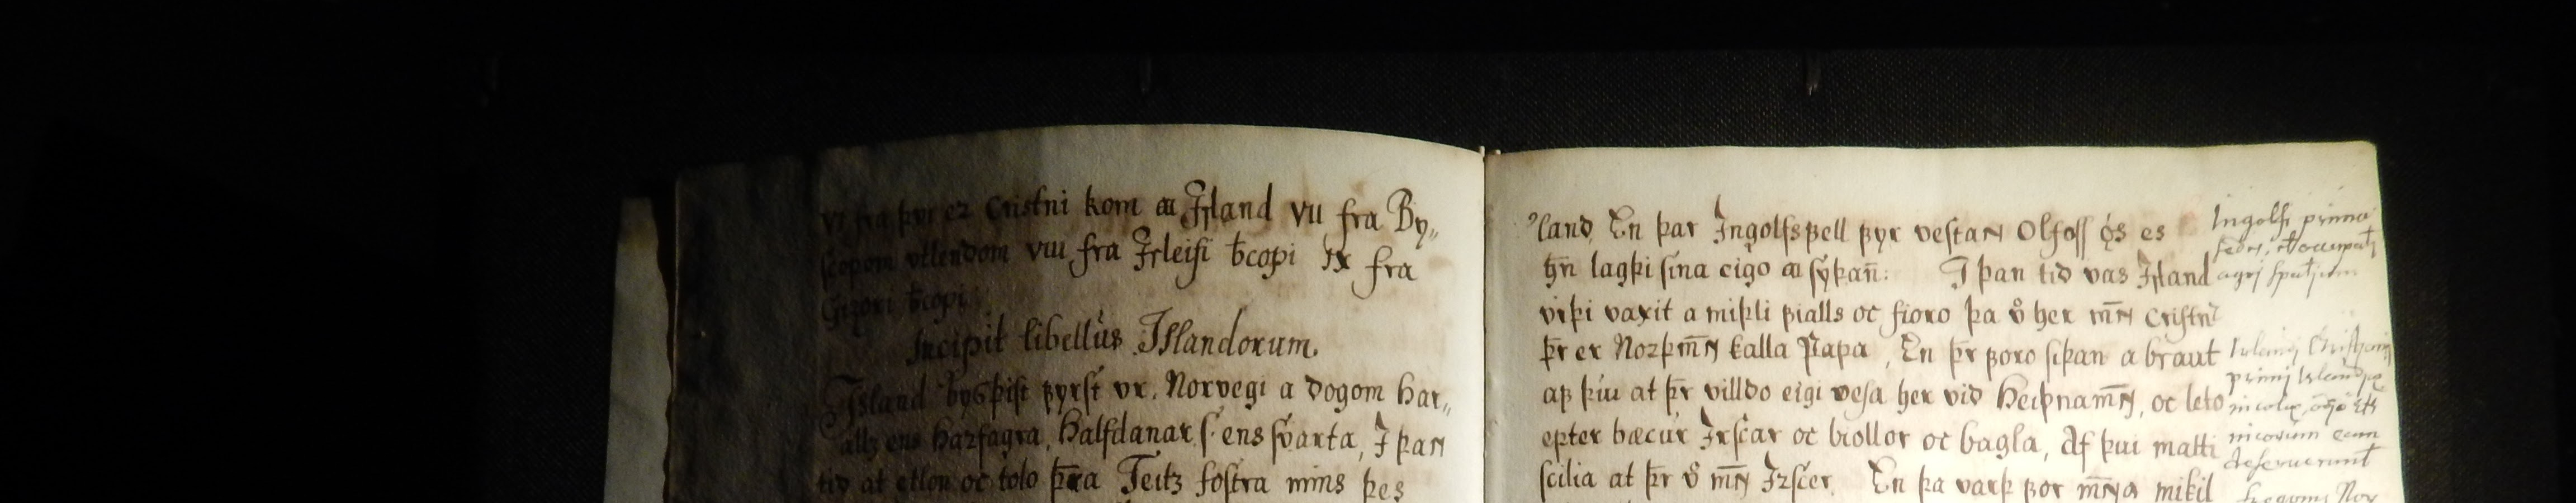 vi fra þvi er Cristni kom a Island vii fra By„
scopom utlendom viii fra Isleifi bcopi ix fra
Gizori bcopi
Incipit libellus Islandorum.
Island bygþist fyrst vr Norvegi a dogom Har„
allz ens harfagra, Halfdanar s. ens svarta, I þan
tiþ at etlon oc tolo þra Teitz fostra mins þes
land, En þar Ingolfsfell fyr vestaɴ Olfoss ǫ́s es
hn lagþi sina eigo a siþan̄: I þan tid vas Island
viþi vaxit a miþli fialls oc fioro þa v her m̄ɴ Cristn
þr er Norþm̄ɴ kalla Papa, En þr foro siþan a braut
af þui at þr villdo eigi vesa her vid heiþnam̄ɴ, oc leto
epter bæcur Irscar oc biollor oc bagla, Af þui matti
scilia at þr v m̄ɴ Irscer. En þa varþ for m̄ɴa mikil
Ingolfi prima
sedes, et occupati
agri spatium
primi Islandiæ
incolæ
deseruerunt